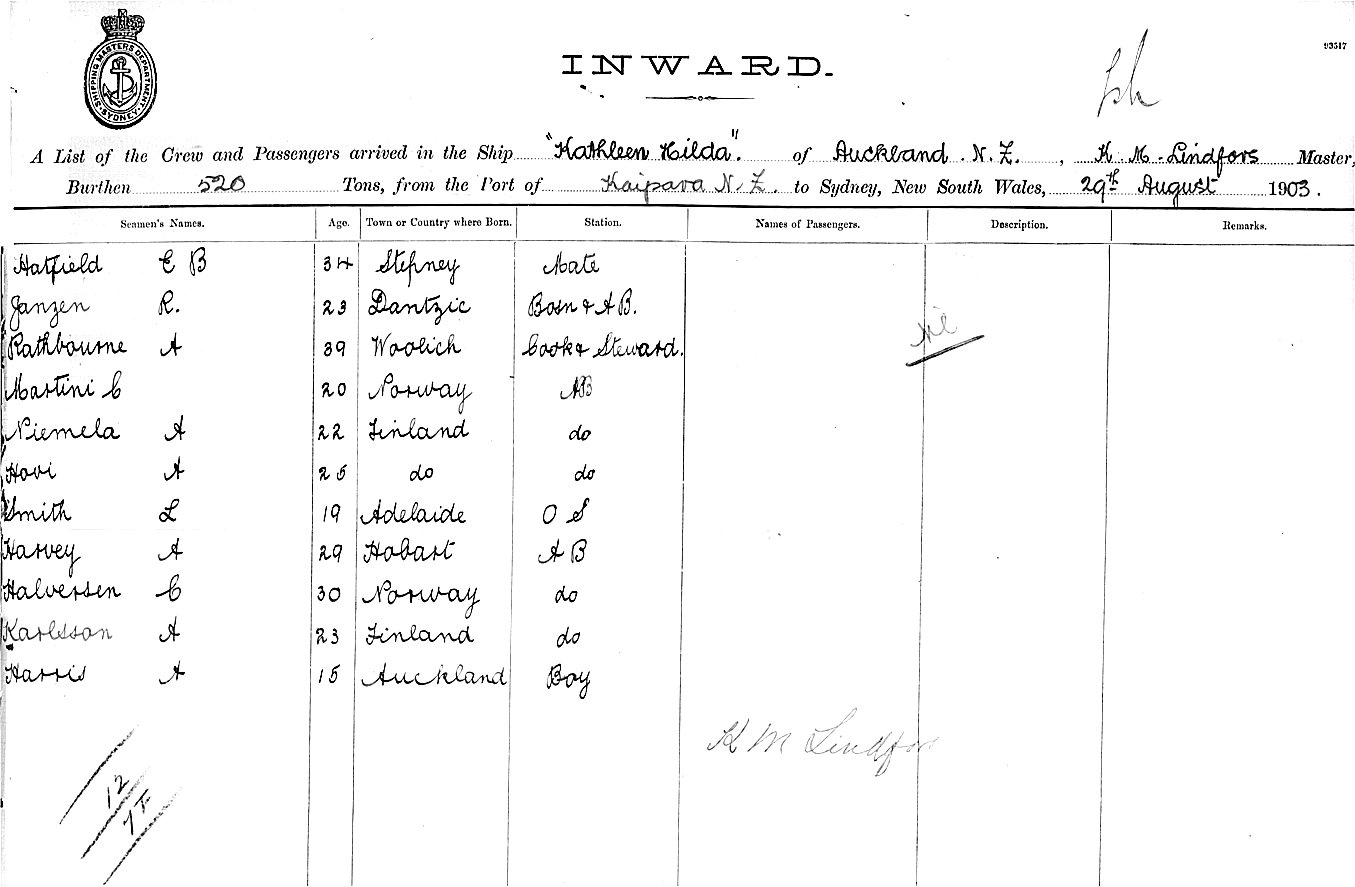 93517
SHIPPING MASTERS DEPARTMENT. SYDNEY
INWARD.
A List of the Crew and Passengers arrived in the Ship "Kathleen Hilda". of Auckland. N. Z., K. M. Lindfors Master,
Burthen 520 Tons, from the Port of Kaipara N. Z. to Sydney, New South Wales, 29th August 1903.
Seamen's Names. Age. Town or Country where Born. Station. Names of Passengers. Description. Remarks.
Hatfield E B 34 Stepney Mate
Janzen R. 23 Dantzic Bosn & A B.
Rathbourne A 39 Woolich Cook & Steward.
Nil
Martini C 20 Norway AB
Niemela A 22 Finland do
Hovi A 25 do do
Smith L 19 Adelaide O S
Harvey A 29 Hobart A B
Halversen C 30 Norway do
Karlsson A 23 Finland do
Harris A 15 Auckland Boy
K M Lindfors
12